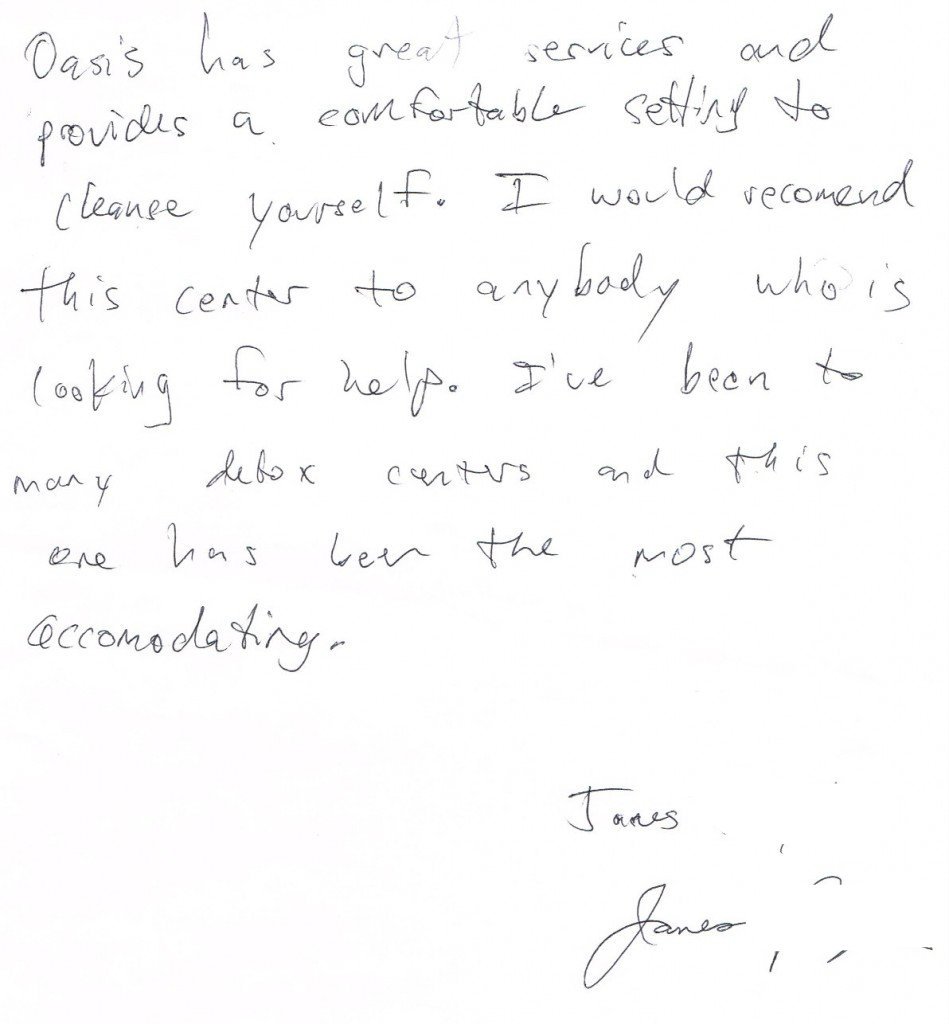 Oasis has great services and
provides a comfortable setting to
cleanse yourself. I would recomend
this center to anybody who is
looking for help. I've been to
many detox centers and this
one has been the most
accomodating.
James
James